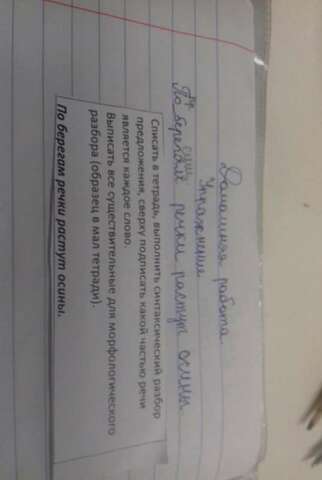 Домашняя работа.
Упражнение
пр. сущ.
По берегам речки растут осины
Списать в тетрадь, выполнить синтаксический разбор
предложения, сверху подписать какой частью речи
является каждое слово.
Выписать все существительные для морфологического
разбора (образец в мал тетради).
По берегам речки растут осины.